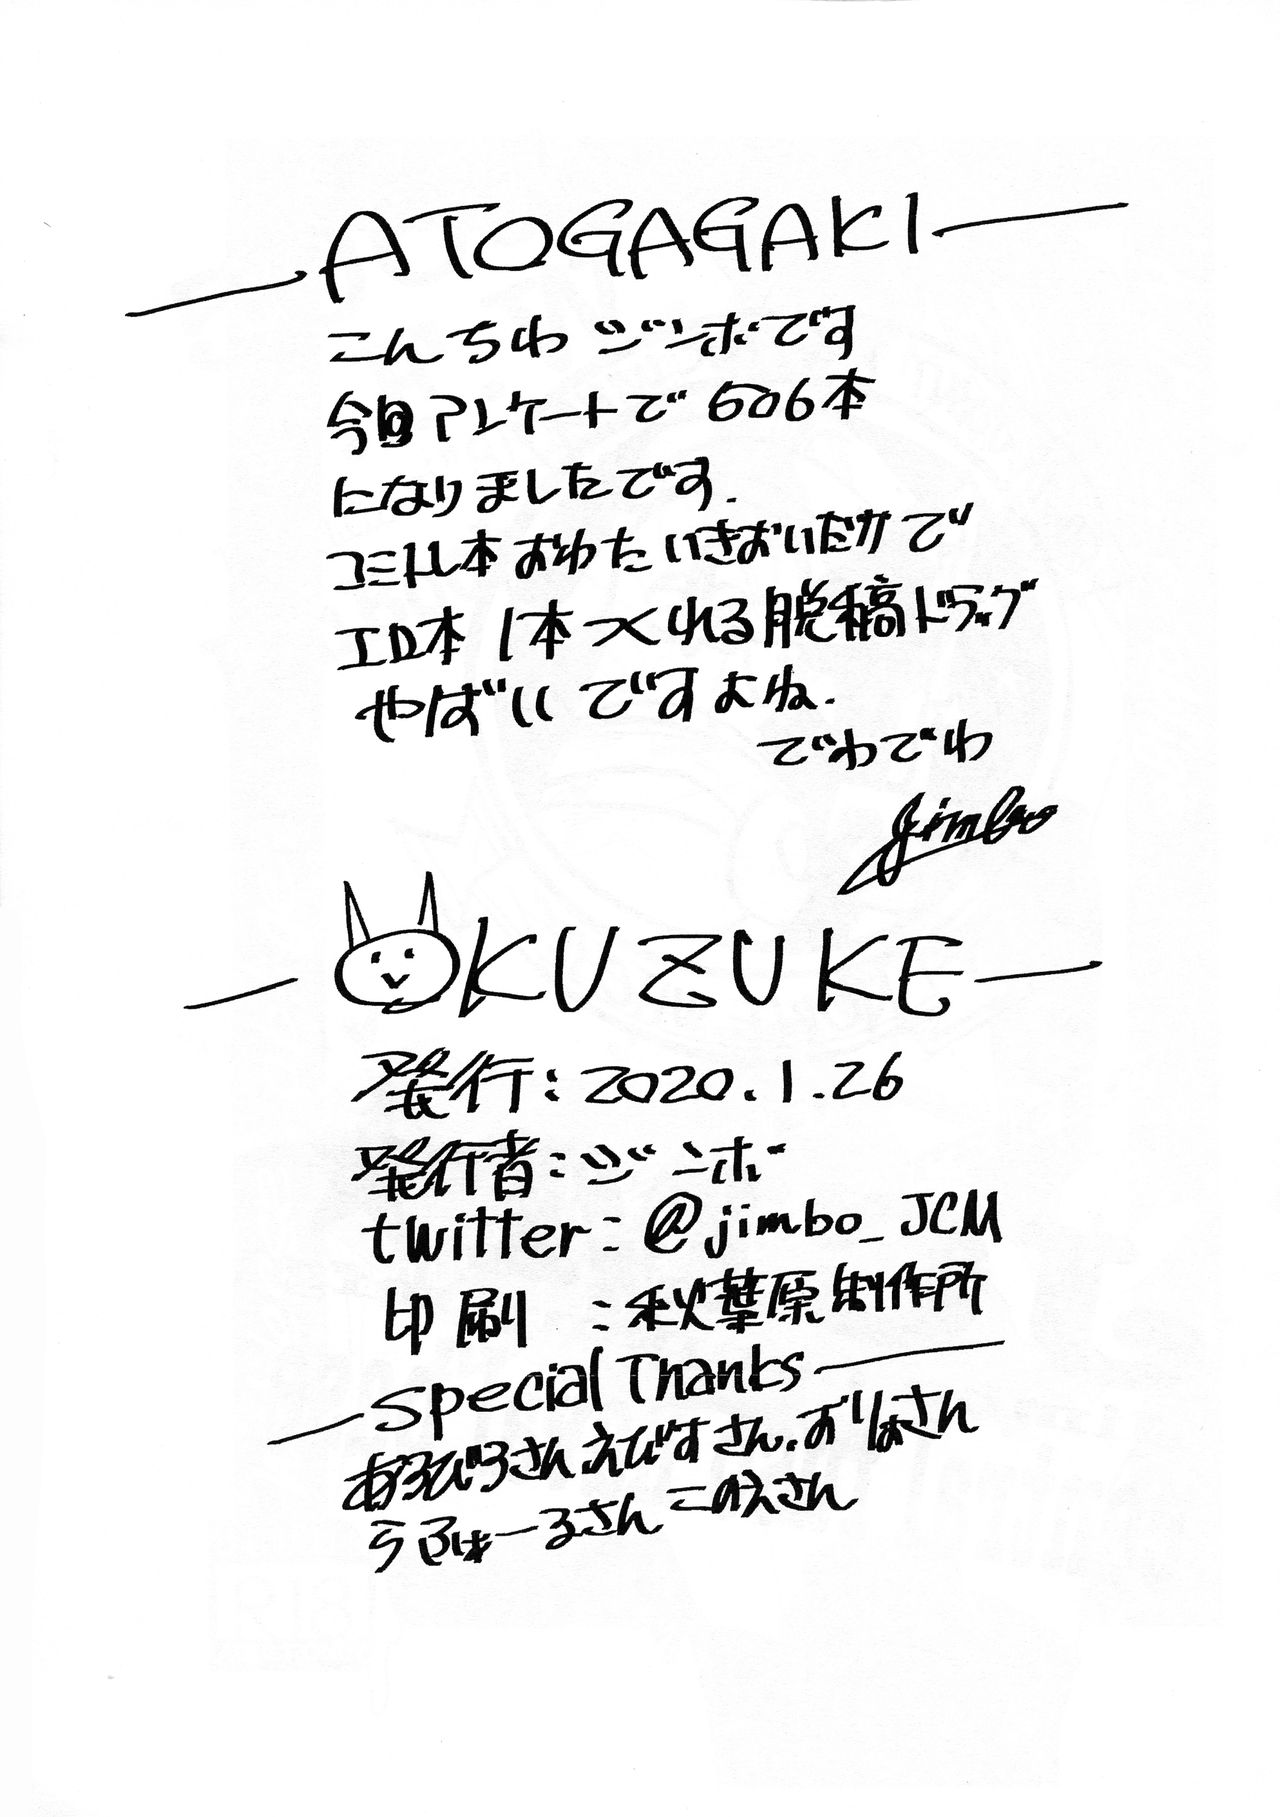 ATOGAGAKI
こんちわ ジンボです
今回アンケートで 606本
になりましたです.
コミトレ本おわたいきおいだかで
エロ本 1本つくれる脱稿ドラッグ
やばいですよね.
でわでわ
jimbo
OKUZUKE
発行:2020.1.26
発行者:ジンボ
twitter:@jimbo_JCM
印刷 :秋葉原制作所
Special Thanks
あろひろさん えびすさん.おりはさん
うらはーるさん このえさん
R18